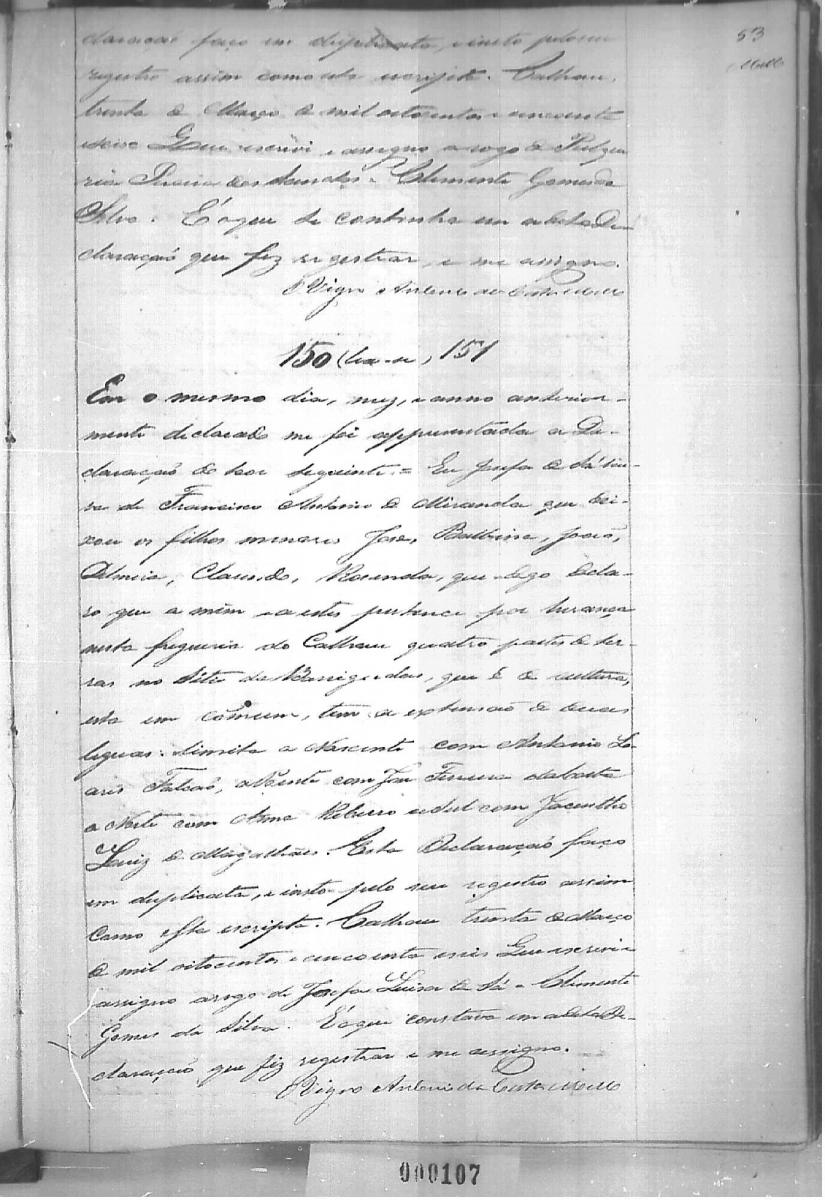 53
Mello
claração faço em duplicata, e insto pelo seu
registro assim como esta escripta. Calhau,
trinta de Março de mil oitocentos e cincoenta
e seis. Que escrivi e assigno a rogo de Pulque-
ria Pereira dos Santos. Clemente Gomes da
Silva. E' o que se continha em a dita De-
claração que fiz registrar, e me assigno.
O Vigro Antonio da Costa Mello
150 (lea-se) 151
Em o mesmo dia, mez, e anno anterior-
mente declarado me foi appresentada a De-
claração do teor seguinte. = Eu Josefa de Sá viu-
va de Francisco Antonio de Miranda que dei-
xou os filhos menores José, Balbina, João,
Delmira, Claudo, Rosenda, que digo decla-
ro que a mim e a estes pertence por herança
nesta freguesia do Calhau quatro partes de ter-
ras no Sitio da Barrigudas, que é de cultura,
esta em comum, tem a extensão de duas
leguas. Limita a Nascente com Antonio Lo-
aris Falcão, a Poente com José Ferreira da Costa
a Norte com Anna Ribeiro e ao Sul com Jacintho
Luiz de Magalhães. Esta Declaração faço
em duplicata, e insto pelo seu registro assim
como esta escripta. Calhau trinta de Março
de mil oitocentos e cincoenta e seis Que escrivi e
assigno a rogo de Josefa Luisa de Sá = Clemente
Gomes da Silva. E' o que constava em a dita De-
claração que fiz registrar e me assigno.
O Vigro Antonio da Costa Mello
000107